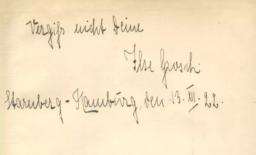 Vergiß nicht Deine
Ilse Gosch.
Starnberg - Hamburg, den 13. XII. 22.